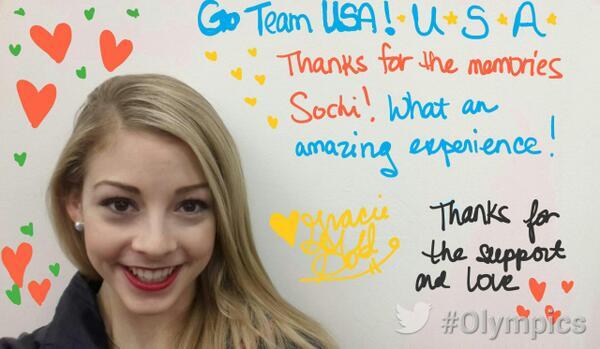 Go Team USA! U S A
Thanks for the memories
Sochi! What an
amazing experience!
Gracie
Gold
Thanks for
the support
and love
#Olympics